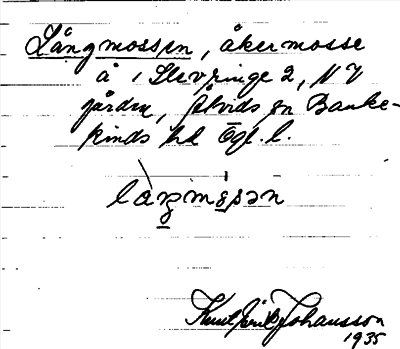 Långmossen, åkermosse
å 1 Slevringe 2, N V
gården, Åtvids sn Banke-
kinds hd Ögl. l.
làŋmɔsən
Knut Erik Johansson
1935